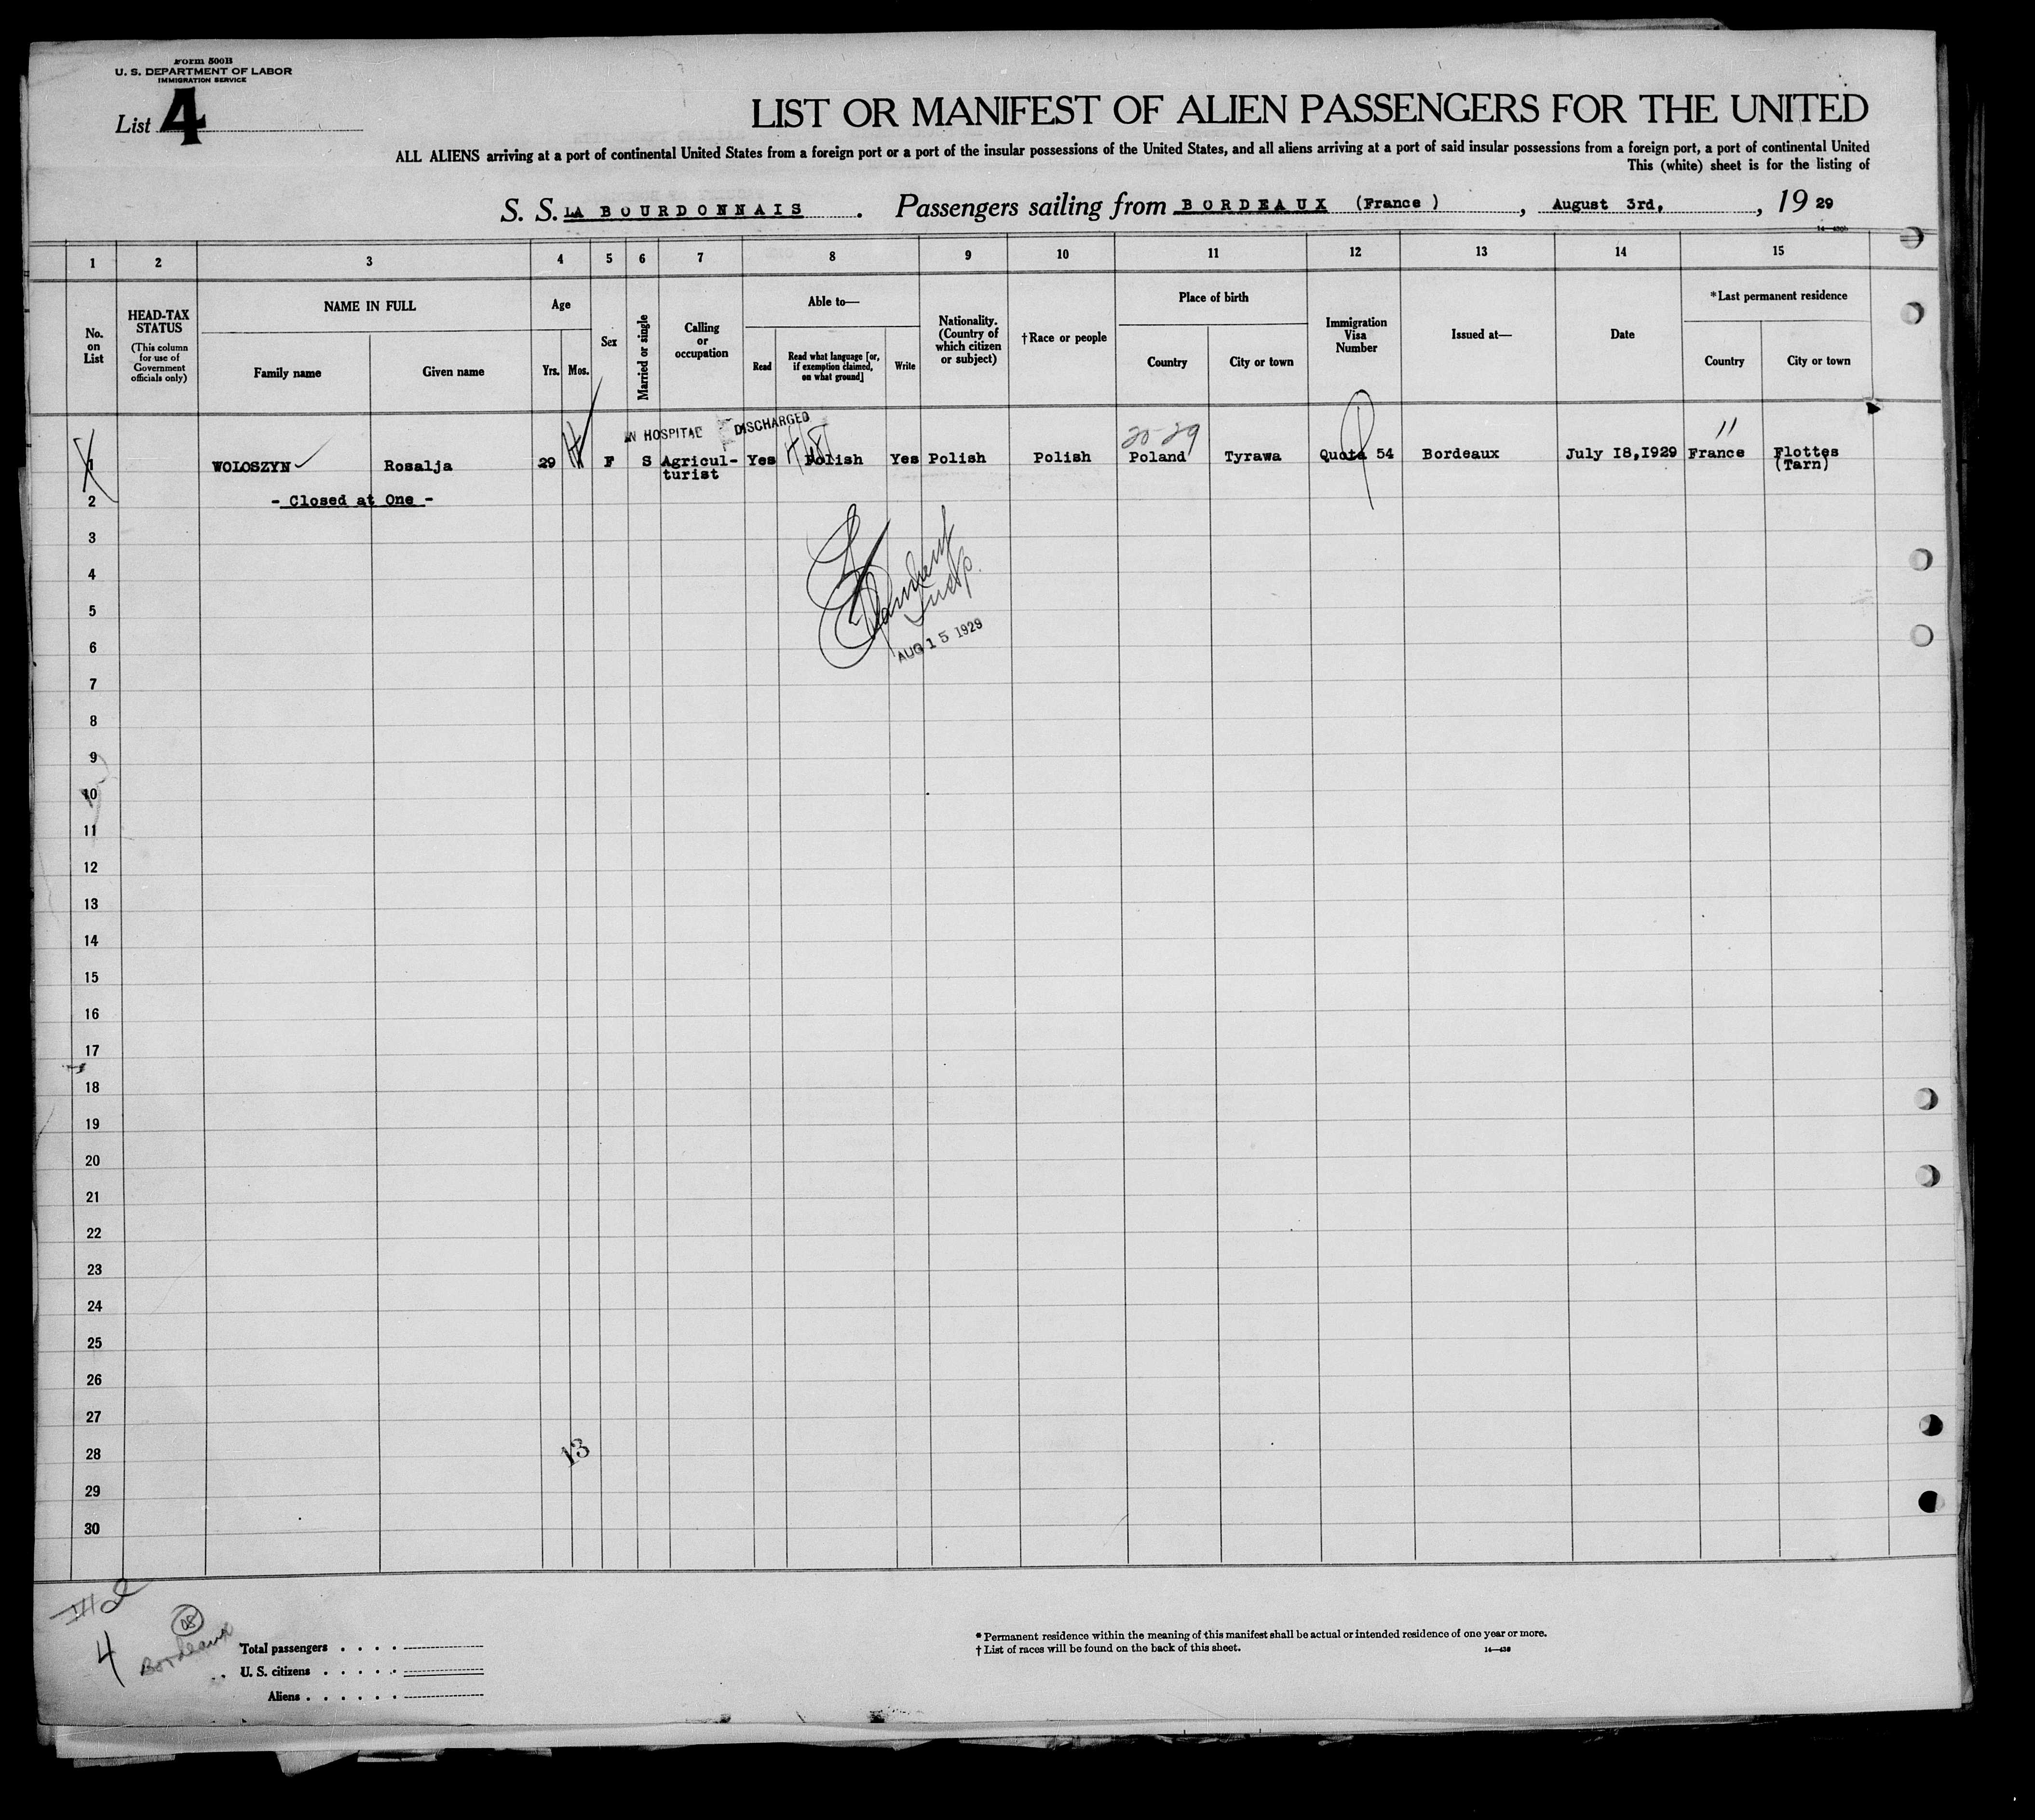 Form 500B
U. S. DEPARTMENT OF LABOR
IMMIGRATION SERVICE
List 4
LIST OR MANIFEST OF ALIEN PASSENGERS FOR THE UNITED
ALL ALIENS arriving at a port of continental United States from a foreign port or a port of the insular possessions of the United States, and all aliens arriving at a port of said insular possessions from a foreign port, a port of continental United
This (white) sheet is for the listing of
S. S. LA BOURDONNAIS . Passengers sailing from BORDEAUX (France ) , August 3rd, , 19 29
1 2 3 4 5 6 7 8 9 10 11 12 13 14 15
No. on List
HEAD-TAX STATUS
(This column for use of Government officials only)
NAME IN FULL
Family name
Given name
Age
Yrs.
Mos.
Sex
Married or single
Calling or occupation
Able to—
Read
Read what language [or, if exemption claimed, on what ground]
Write
Nationality. (Country of which citizen or subject)
†Race or people
Place of birth
Country
City or town
Immigration Visa Number
Issued at—
Date
*Last permanent residence
Country
City or town
IN HOSPITAL DISCHARGED
20-29
11
1 WOLOSZYN Rosalja 29 F S Agricul- Yes Polish Yes Polish Polish Poland Tyrawa Quota 54 Bordeaux July 18,1929 France Flottes
turist (Tarn)
2 - Closed at One -
3
4
5
Insp.
AUG 15 1929
6
7
8
9
10
11
12
13
14
15
16
17
18
19
20
21
22
23
24
25
26
27
28 13
29
30
4
08
Bordeaux
Total passengers . . . .
U. S. citizens . . . . .
Aliens . . . . . .
* Permanent residence within the meaning of this manifest shall be actual or intended residence of one year or more.
† List of races will be found on the back of this sheet.
14—430